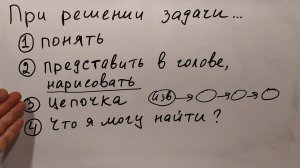 При решении задачи...
① понять
② представить в голове,
нарисовать
③ цепочка изв
④ Что я могу найти?